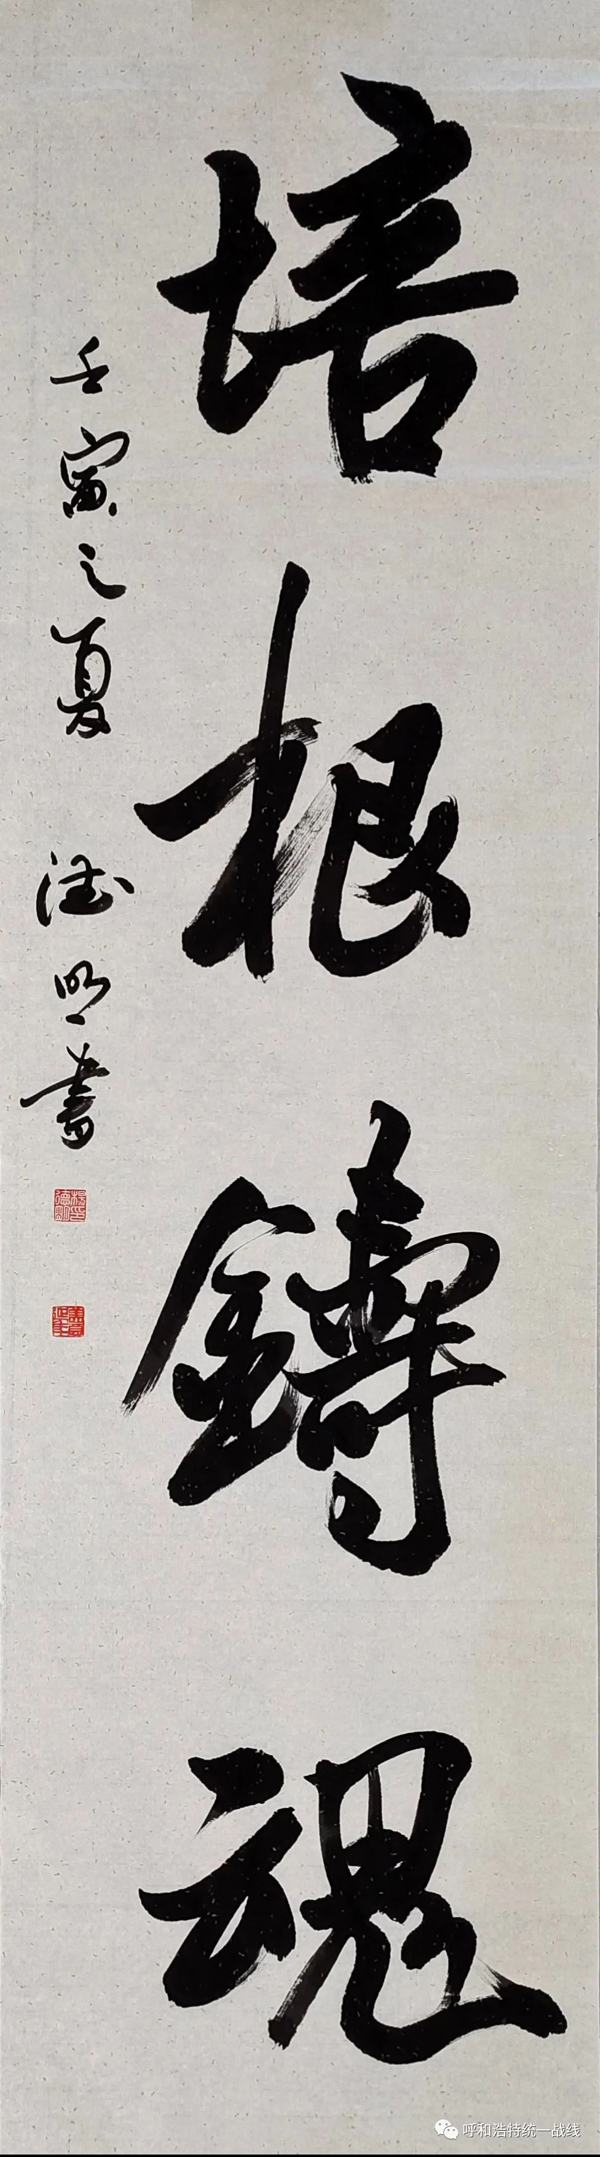 培根鑄魂
壬寅之夏 德明書
呼和浩特统一战线